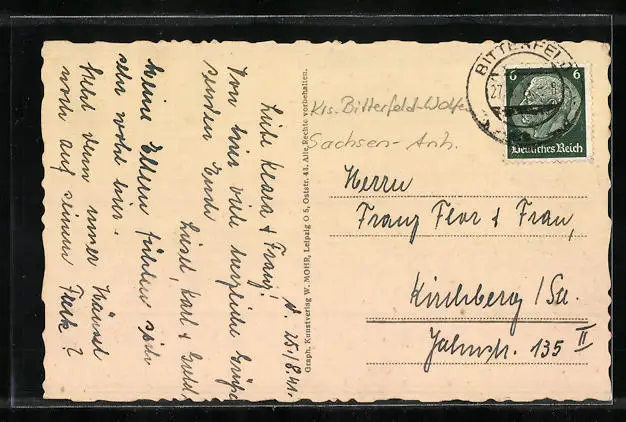 d. 25./8.41.
Liebe Klara & Franz!
Von hier viele herzliche Grüße
senden Euch
Liesel, Karl &
Meine Eltern fühlen sich
sehr wohl hier.
denn unser
noch auf seinem Fleck?
Graph. Kunstverlag W. MOHR, Leipzig O 5, Oststr. 43. Alle Rechte vorbehalten.
Krs. Bitterfeld-Wolfen
Sachsen-Anh.
BITTERFELD
27.
6 6
Deutsches Reich
Herrn
Franz Flor & Frau,
Kirchberg / Sa.
Jahnstr. 135 II